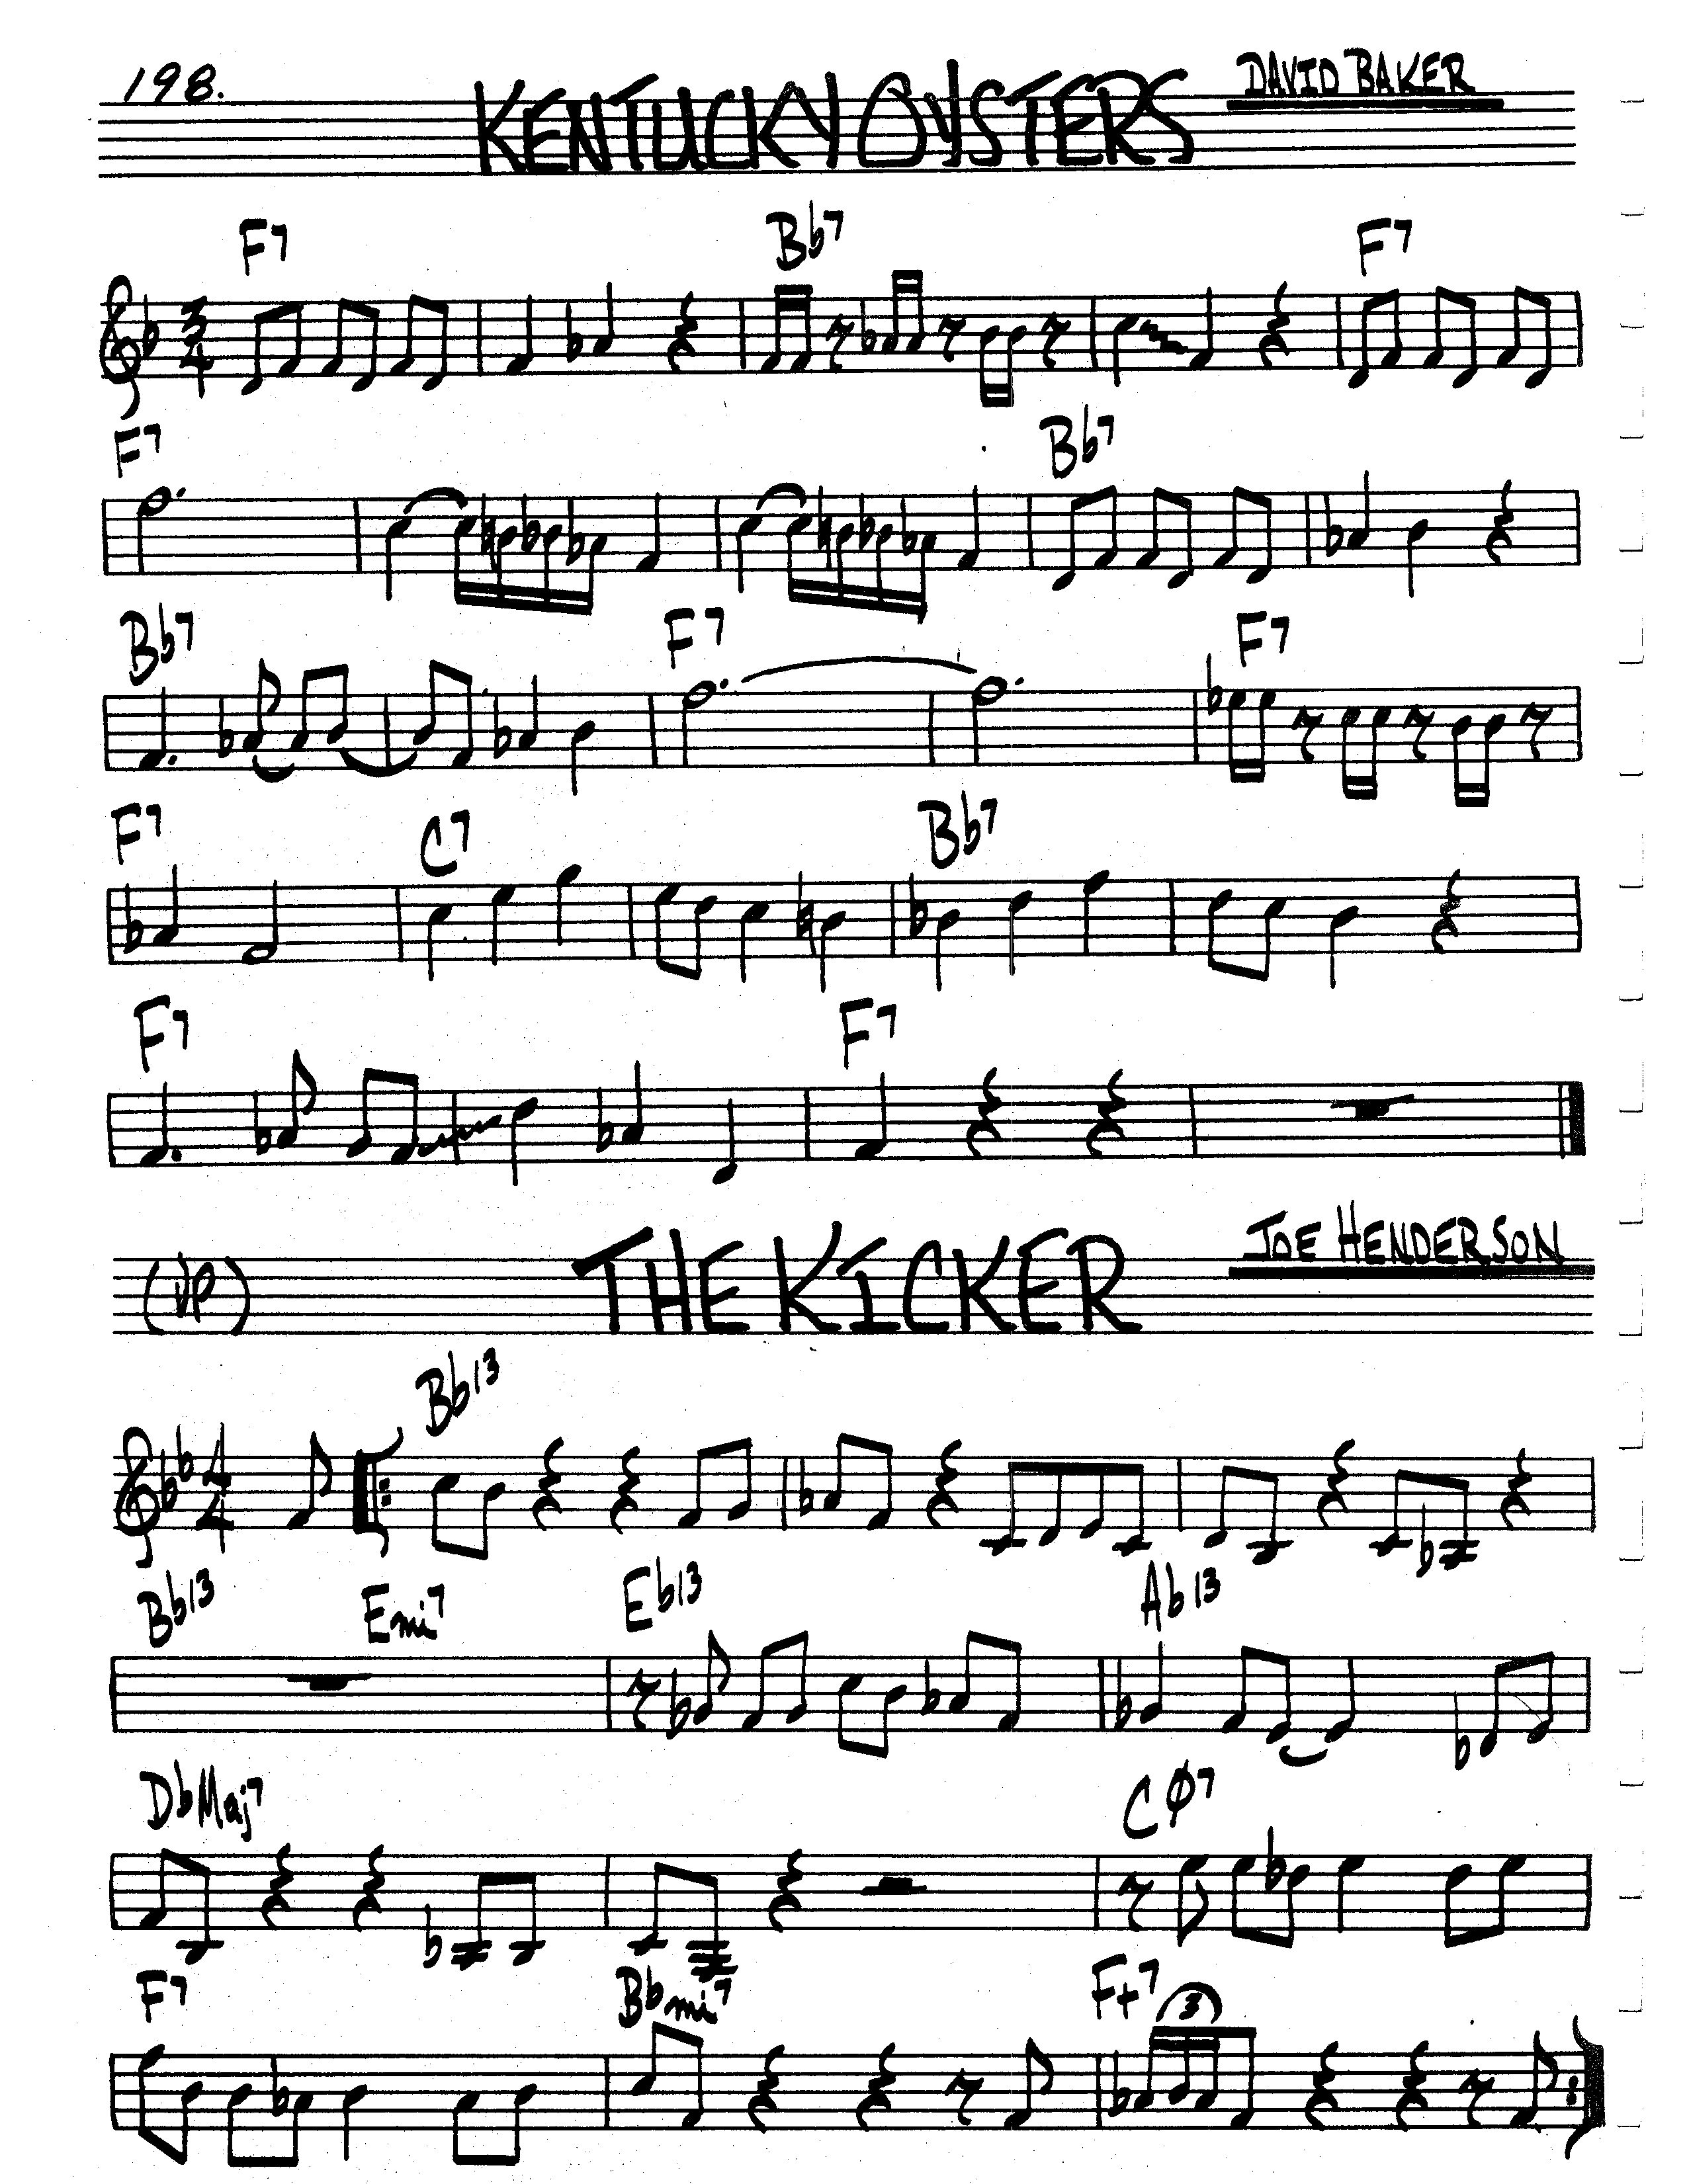 198.
KENTUCKY OYSTERS
DAVID BAKER
F7 Bb7 F7
3
4
F7 Bb7
Bb7 F7 F7
F7 C7 Bb7
F7 F7
(UP)
THE KICKER
JOE HENDERSON
Bb13
4
4
Bb13 Emi7 Eb13 Ab13
DbMaj7 CØ7
F7 Bbmi7 F+7
3